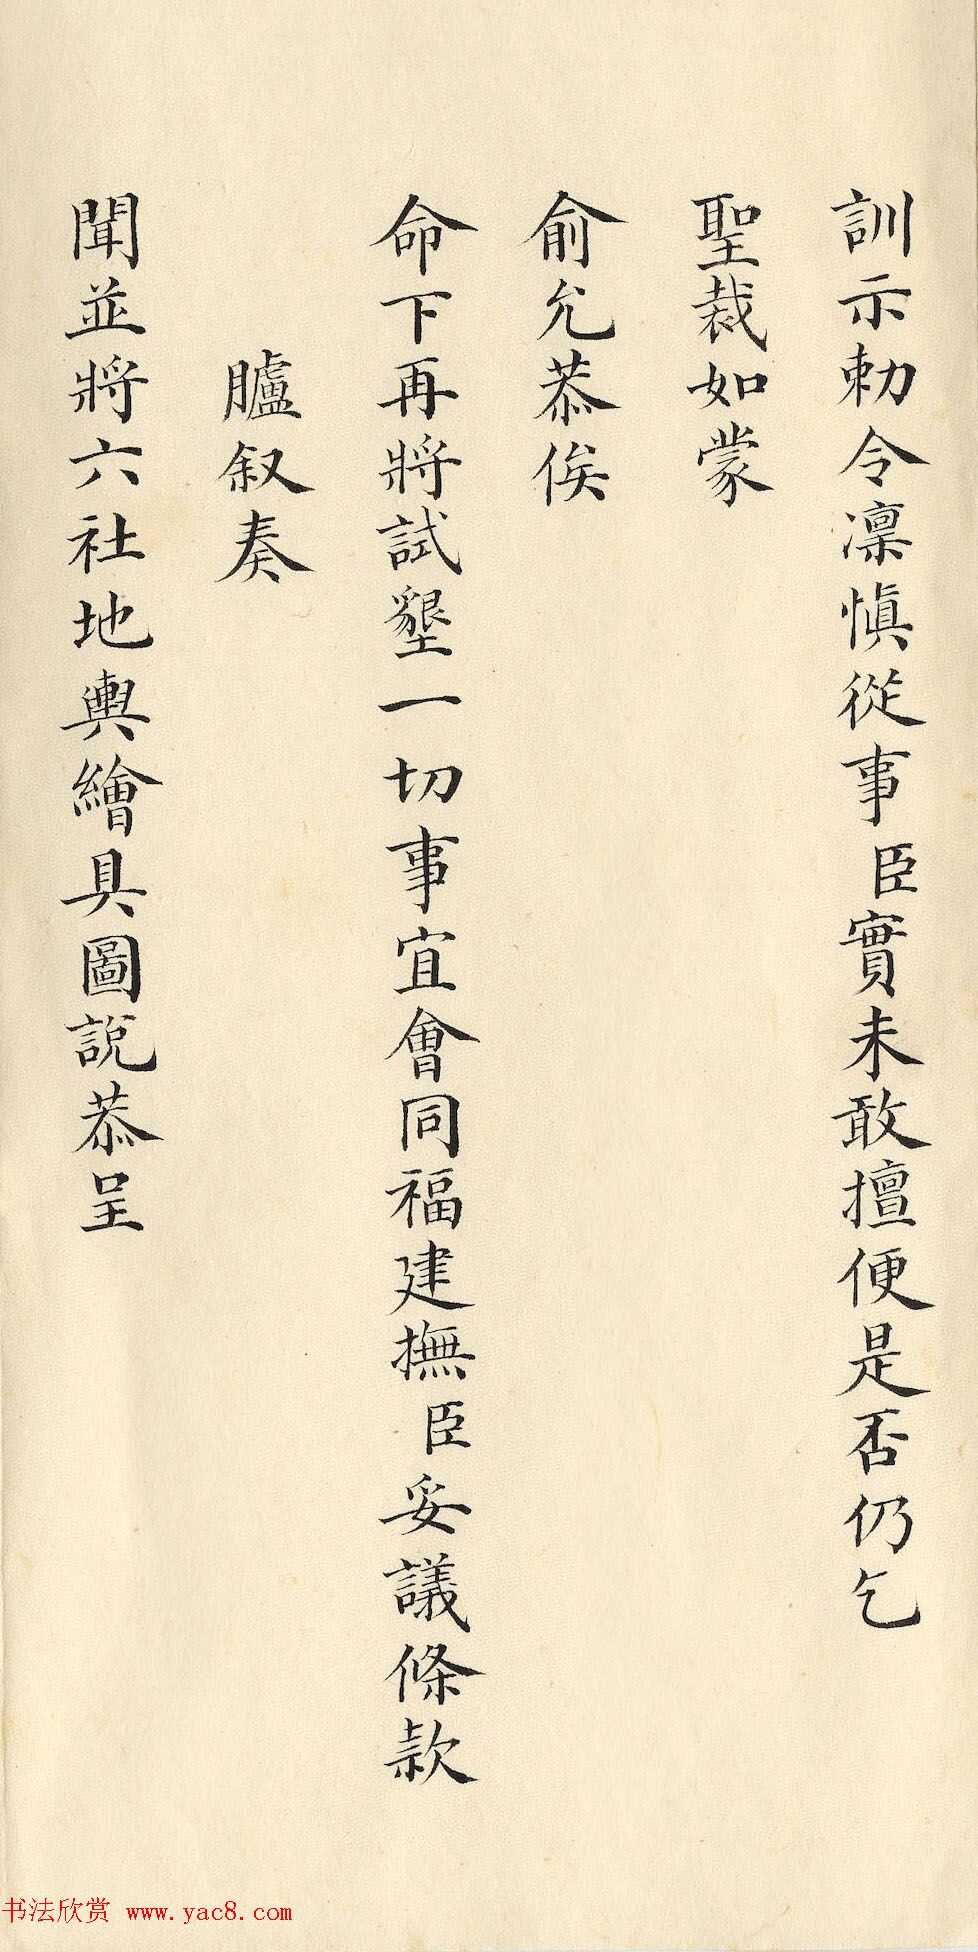 訓示勅令凜慎從事臣實未敢擅便是否仍乞
聖裁如蒙
俞允恭俟
命下再將試墾一切事宜會同福建撫臣妥議條款
臚叙奏
聞並將六社地輿繪具圖說恭呈
书法欣赏 www.yac8.com